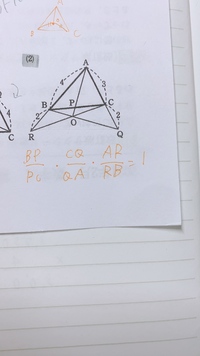 B C
(2)
A
4 3
B P C
2 O 2
R Q
4
C
BP/PC · CQ/QA · AR/RB = 1